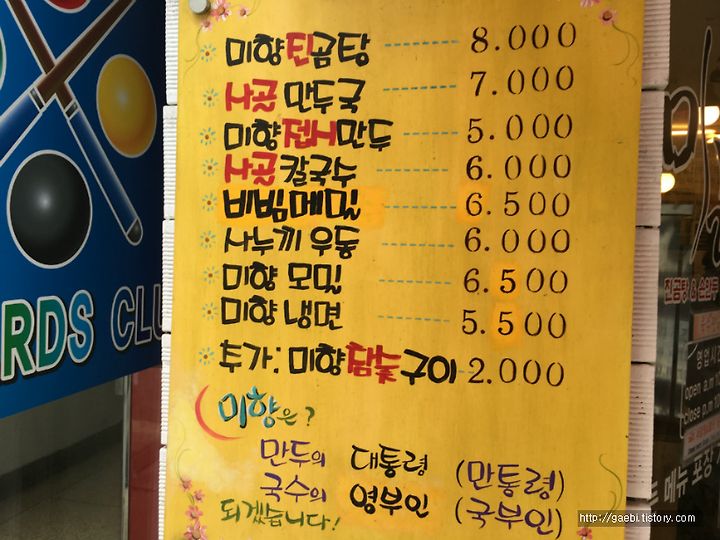 미향진곰탕 ------- 8.000
사골만두국 ------- 7.000
미향접시만두 ------- 5.000
사골칼국수 ------- 6.000
비빔메밀 ------- 6.500
사누끼 우동 ------- 6.000
미향 모밀 ------- 6.500
미향 냉면 ------- 5.500
추가: 미향담숯구이 - 2.000
미향은?
만두의 대통령 (만통령)
국수의 영부인 (국부인)
되겠습니다!
RDS CLU
진곰탕 & 손만두
영업시
open a.m
close p.m
메뉴 포장
http://gaebi.tistory.com